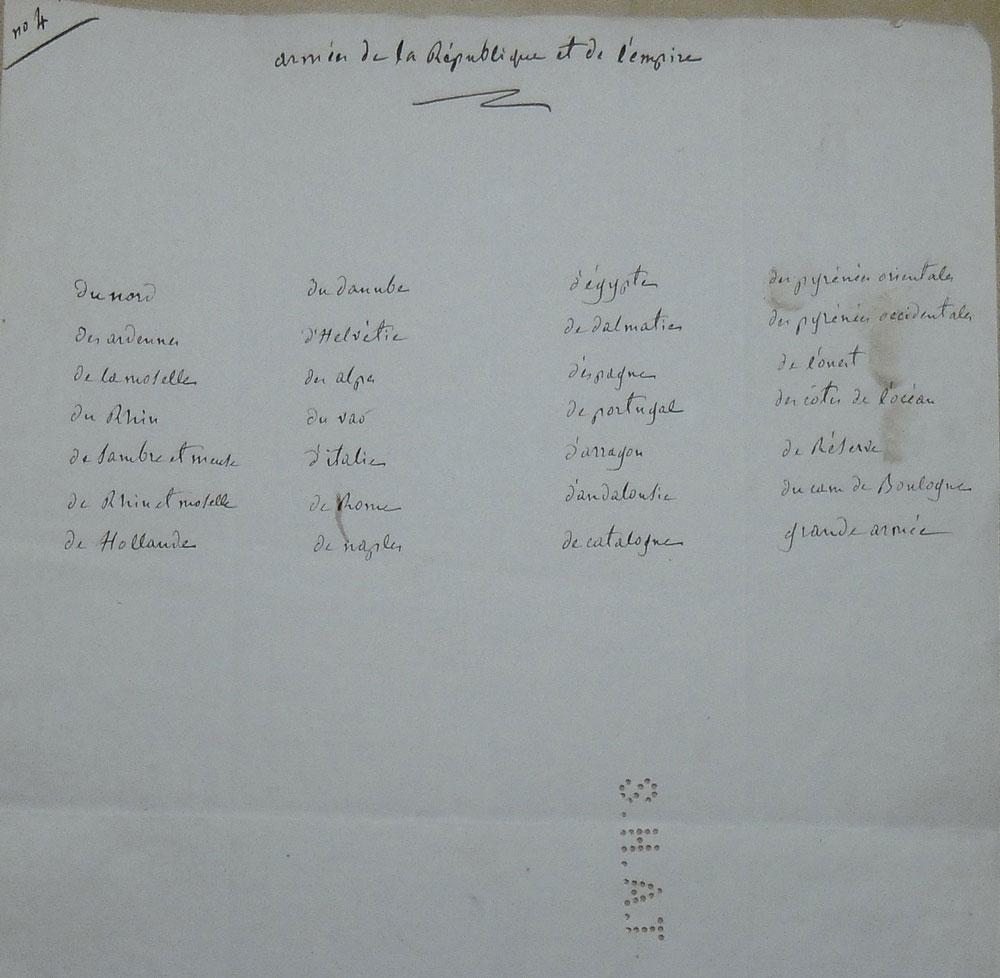 no 4
armées de la République et de l'empire
du nord
des ardennes
de la moselle
du Rhin
de sambre et meuse
de Rhin et moselle
de Hollande
du danube
d'Helvétie
des alpes
du var
d'italie
de Rome
de naples
d'égypte
de dalmatie
d'éspagne
de portugal
d'arragon
d'andalousie
de catalogne
des pyrénées orientales
des pyrénées occidentales
de l'ouest
des côtes de l'océan
de Réserve
du cam de Boulogne
grande armée
S.H.A.T